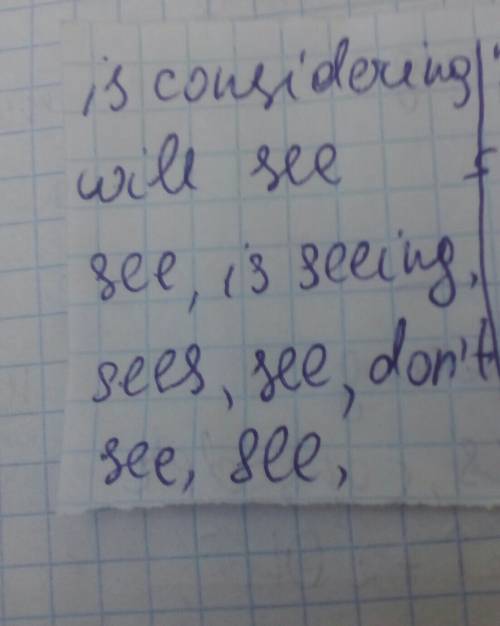 is considering
will see
see, is seeing,
sees, see, don't
see, see,